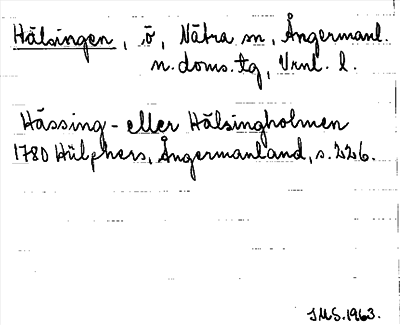 Hälsingen, ö, Nätra sn, Ångermanl.
n. doms.tg, Vrnl. l.
Hässing- eller Hälsingholmen
1780 Hülphers, Ångermanland, s. 226.
JMS. 1963.